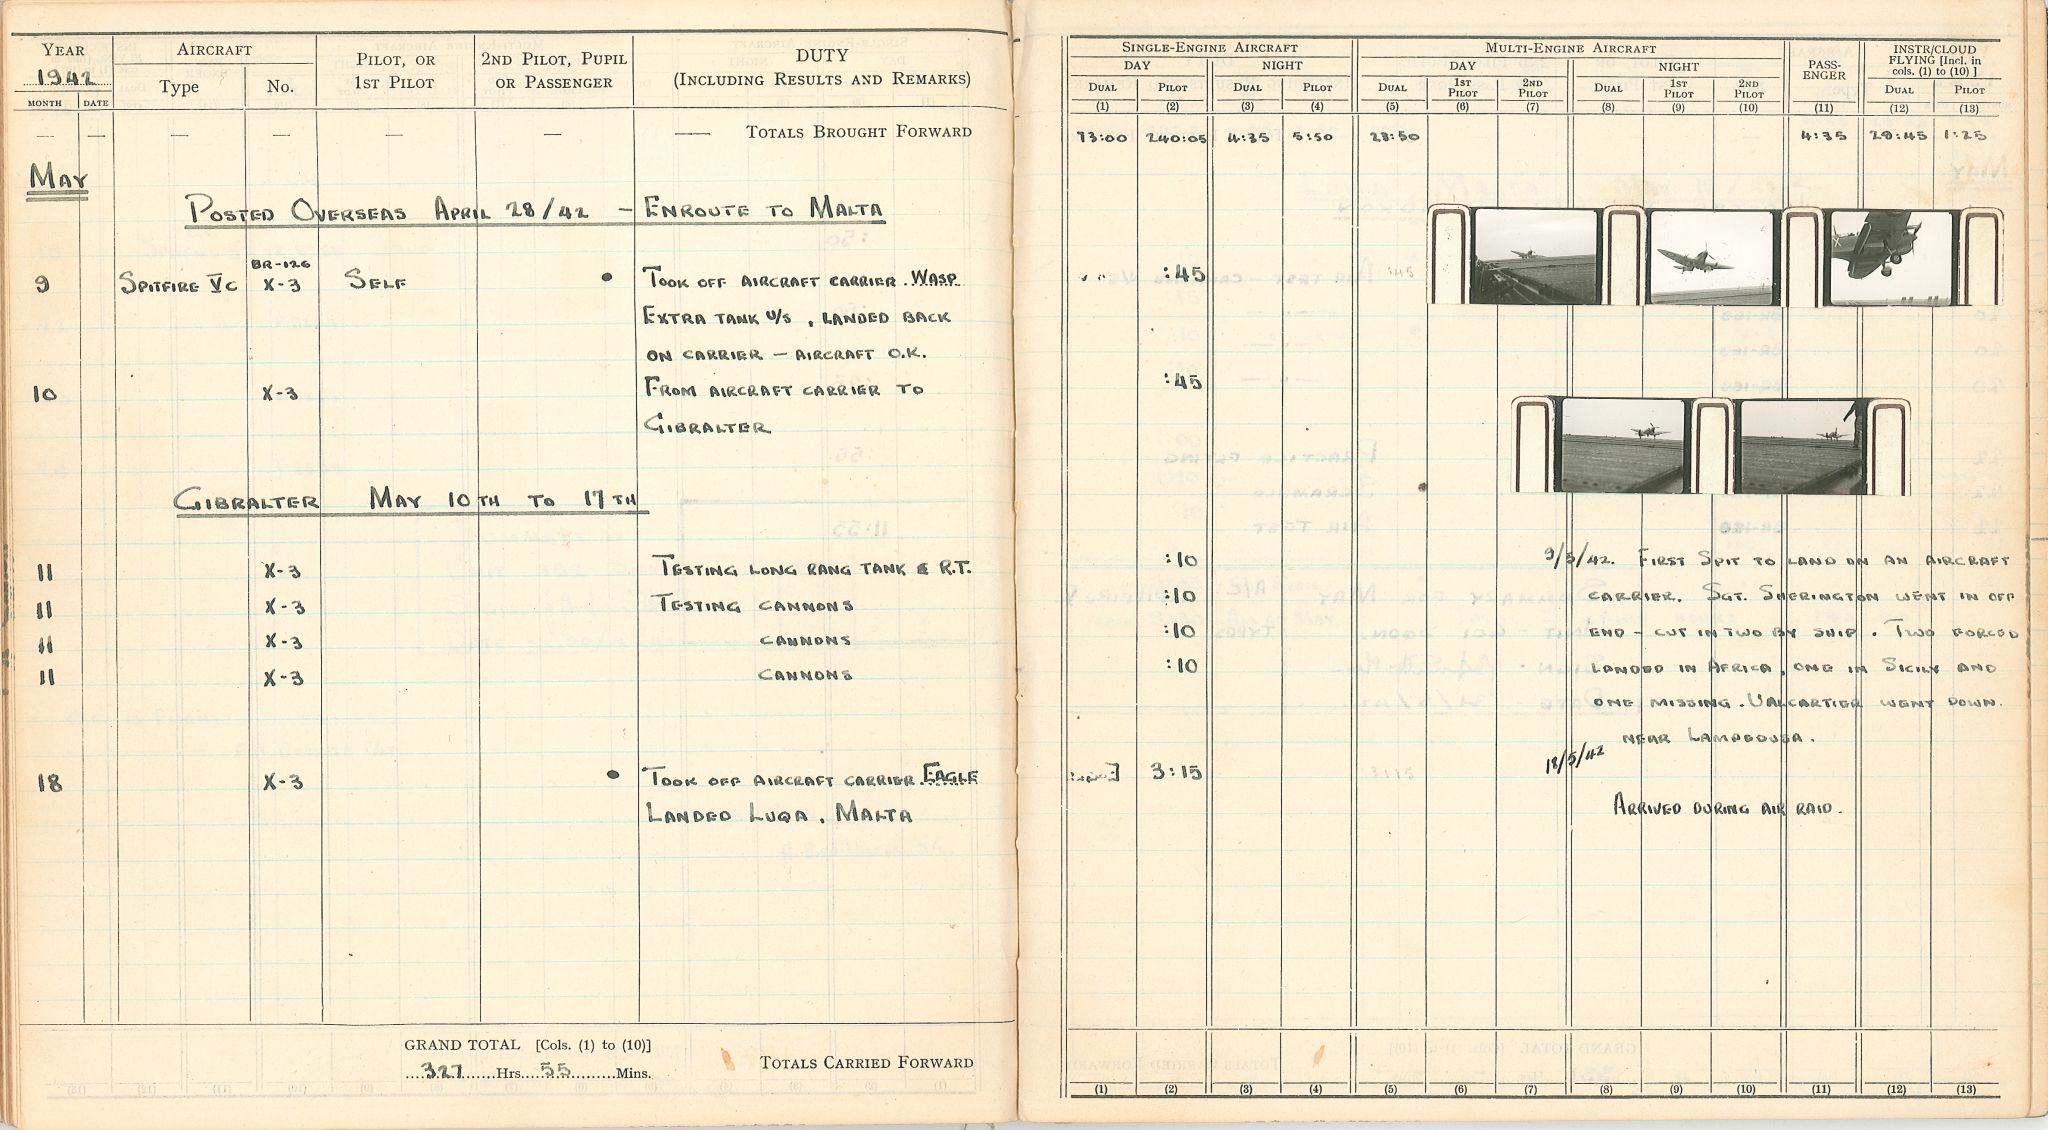 YEAR
1942
MONTH DATE
AIRCRAFT
Type No.
PILOT, OR
1ST PILOT
2ND PILOT, PUPIL
OR PASSENGER
DUTY
(INCLUDING RESULTS AND REMARKS)
— — — — — — —— TOTALS BROUGHT FORWARD
MAY
POSTED OVERSEAS APRIL 28/42 – ENROUTE TO MALTA
BR-126
9 SPITFIRE VC X-3 SELF • TOOK OFF AIRCRAFT CARRIER WASP
EXTRA TANK U/S, LANDED BACK
ON CARRIER – AIRCRAFT O.K.
10 X-3 FROM AIRCRAFT CARRIER TO
GIBRALTER
GIBRALTER MAY 10TH TO 17TH
11 X-3 TESTING LONG RANG TANK & R.T.
11 X-3 TESTING CANNONS
11 X-3 CANNONS
11 X-3 CANNONS
18 X-3 • TOOK OFF AIRCRAFT CARRIER EAGLE
LANDED LUQA, MALTA
GRAND TOTAL [Cols. (1) to (10)]
327 Hrs. 55 Mins.
TOTALS CARRIED FORWARD
SINGLE-ENGINE AIRCRAFT MULTI-ENGINE AIRCRAFT PASS-ENGER INSTR/CLOUD
FLYING [Incl. in
cols. (1) to (10) ]
DAY NIGHT DAY NIGHT
DUAL PILOT DUAL PILOT DUAL 1ST PILOT 2ND PILOT DUAL 1ST PILOT 2ND PILOT DUAL PILOT
(1) (2) (3) (4) (5) (6) (7) (8) (9) (10) (11) (12) (13)
73:00 240:05 4:35 5:50 28:50 4:35 29:45 1:25
:45
:45
:10
:10
:10
:10
3:15
9/5/42. FIRST SPIT TO LAND ON AN AIRCRAFT
CARRIER. SGT. SHERINGTON WENT IN OFF
END – CUT IN TWO BY SHIP. TWO FORCED
LANDED IN AFRICA, ONE IN SICILY AND
ONE MISSING. VALCARTIER WENT DOWN
NEAR LAMPEDUSA.
18/5/42
ARRIVED DURING AIR RAID.
(1) (2) (3) (4) (5) (6) (7) (8) (9) (10) (11) (12) (13)